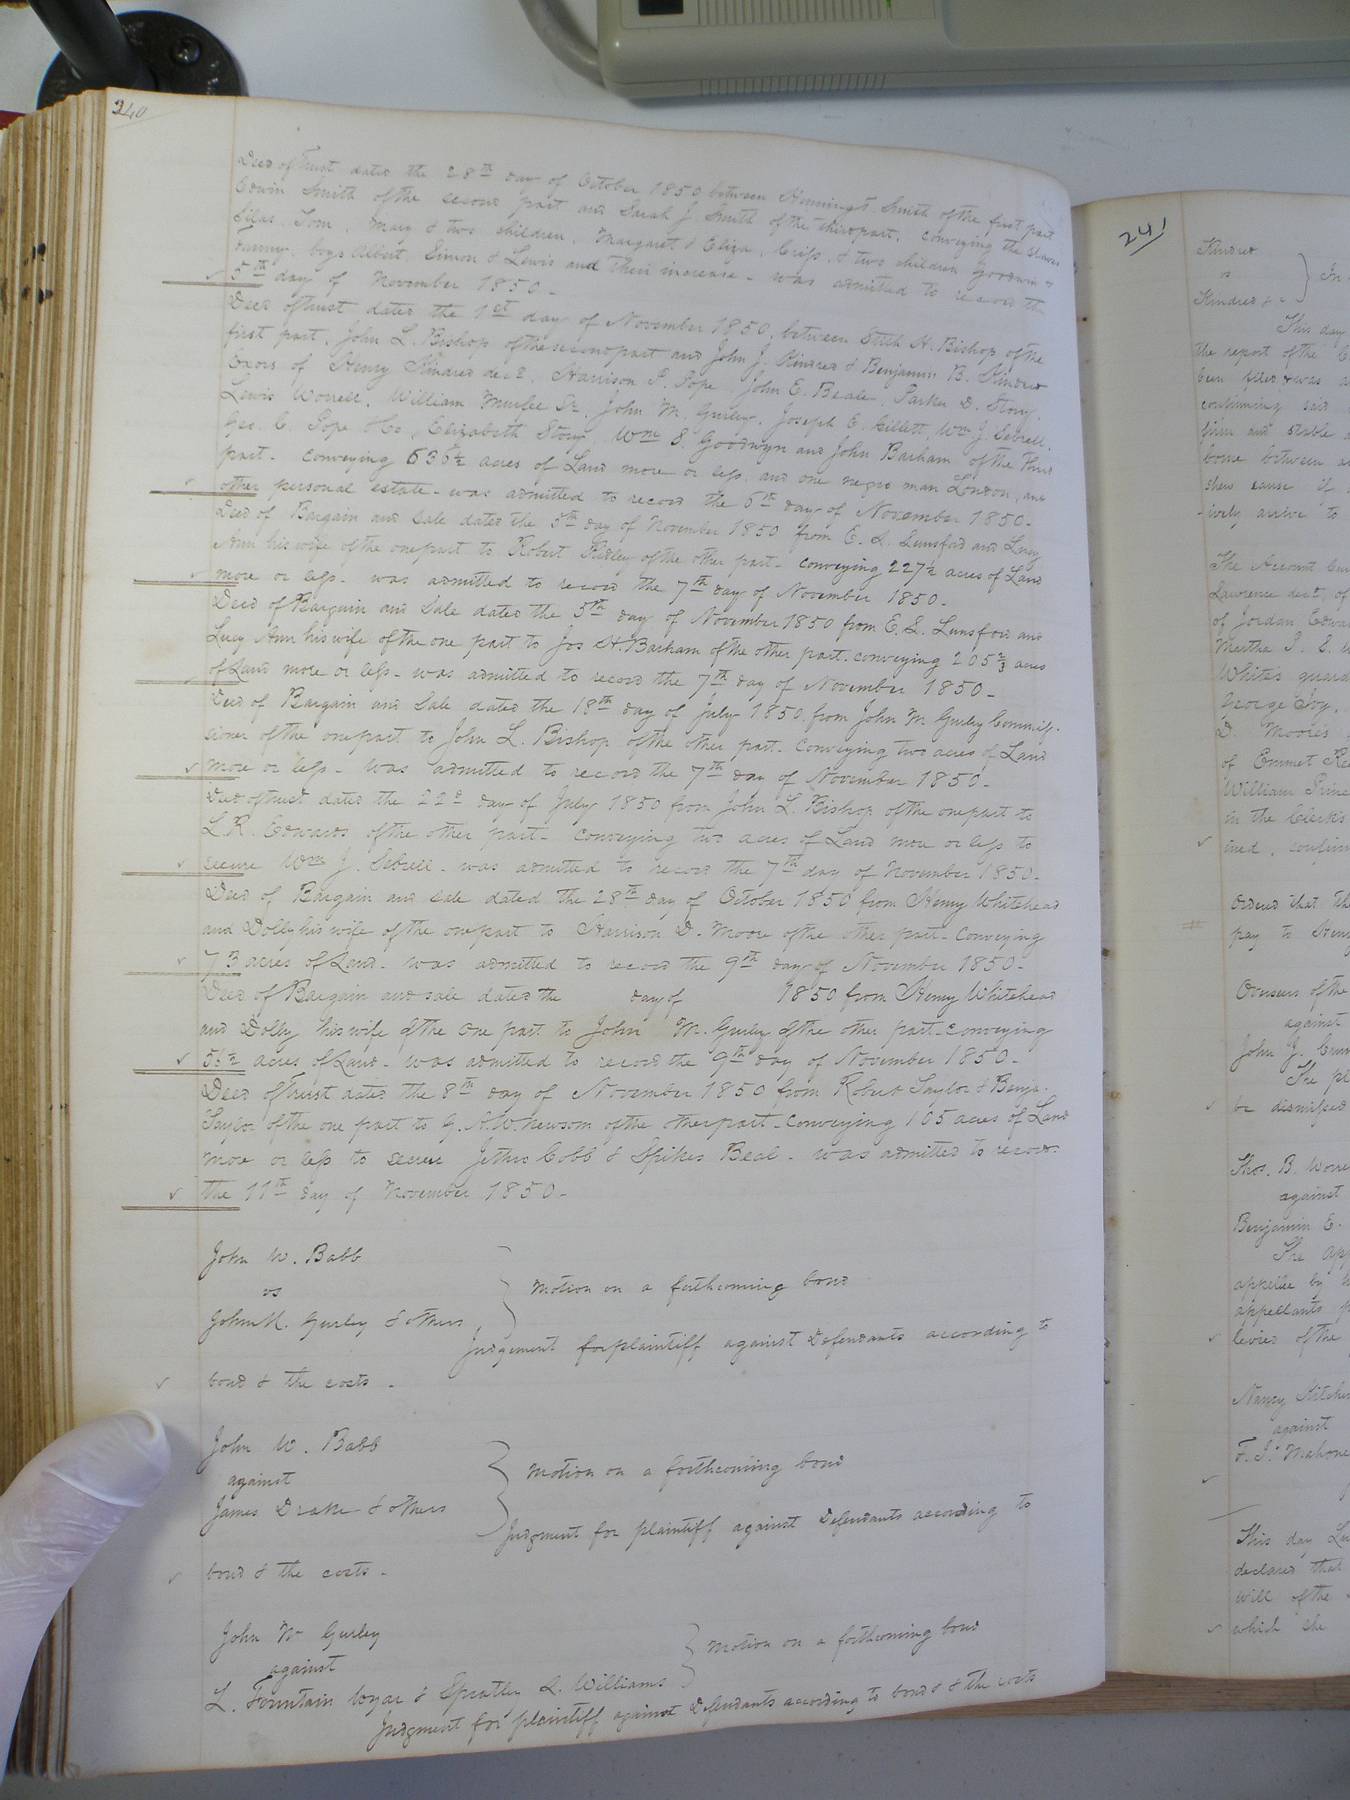 240
Deed of Trust dated the 28th day of October 1850 between Smith of the first part
Edwin Smith of the second part and Sarah J Smith of the third part, conveying the slaves
Silas, Tom, Mary & two children, Margaret, & Eliza, & two children Goodwin &
Fanny, boys Albert, Simon & Lewis and their increase - was admitted to record the
5th day of November 1850 -
Deed of trust dated the 1st day of November 1850, between H. Bishop of the
first part, John L. Bishop of the second part and John J. Kindred & Benjamin B. Kindred
Exors of Henry Kindred decd, Harrison P. Pope, John E. Beale, Parker D. Story,
Lewis Worrell, William Murfee Sr, John M. Gurley, Joseph E. Gillett, Wm J. Sebrell,
Geo. C. Pope & Co, Elizabeth Story, Wm S. Goodwyn and John Barham of the third
part - conveying 636½ acres of Land more or less, and one negro man London, and
other personal estate - was admitted to record the 6th day of November 1850 -
Deed of Bargain and sale dated the 5th day of November 1850 from E. S. Lunsford and Lucy
Ann his wife of the one part to Robert Ridley of the other part - conveying 227½ acres of Land
more or less - was admitted to record the 7th day of November 1850 -
Deed of Bargain and Sale dated the 5th day of November 1850 from E. S. Lunsford and
Lucy Ann his wife of the one part to Jos H. Barham of the other part - conveying 205⅔ acres
of Land more or less - was admitted to record the 7th day of November 1850 -
Deed of Bargain and Sale dated the 18th day of July 1850 from John M Gurley Commis-
sioner of the one part to John L. Bishop of the other part - conveying two acres of Land
more or less - was admitted to record the 7th day of November 1850 -
Deed of trust dated the 22d day of July 1850 from John L. Bishop of the one part to
L. R. Edwards of the other part - conveying two acres of Land more or less to
secure Wm J. Sebrell - was admitted to record the 7th day of November 1850 -
Deed of Bargain and sale dated the 28th day of October 1850 from Henry Whitehead
and Dolly his wife of the one part to Harrison D. Moore of the other part - conveying
73 acres of Land - was admitted to record the 9th day of November 1850 -
Deed of Bargain and sale dated the day of 1850 from Henry Whitehead
and Dolly his wife of the one part to John M. Gurley of the other part - conveying
56½ acres of Land - was admitted to record the 9th day of November 1850 -
Deed of trust dated the 8th day of November 1850 from Robert Taylor & Benja.
Taylor of the one part to G. A. W. Newsom of the other part - conveying 105 acres of Land
more or less to secure Jethro Cobb & Spikes Beal - was admitted to record
the 11th day of November 1850 -
John W. Babb
vs
John M. Gurley & others
Motion on a forthcoming bond
Judgement for plaintiff against Defendants according to
bond & the costs -
John W. Babb
against
James Drake & others
Motion on a forthcoming bond
Judgment for plaintiff against Defendants according to
bond & the costs -
John W Gurley
against
L. Fountain & Spratley L. Williams
Motion on a forthcoming bond
Judgment for plaintiff against Defendants according to bond & the costs
241
Kindred
vs
Kindred &c
In
This day
the report of the
been filed & was
confirming said
firm and stable
borne between
shew cause if
-ively arrive to
The Account
Lawrence decd, of
of Jordan Edwa
Martha P. S.
White's guard
George Ivy,
D. Moore's
of Emmet
William Prince
in the Clerk's
ined, confirm
Ordered that the
pay to Henry
Overseers of the
against
John J.
The pl
be dismissed
Thos. B. Worre
against
Benjamin E.
The app
appellee by
appellants
levied of the
Nancy Kitchen
against
Mahone
This day
declared that
will of the
which she